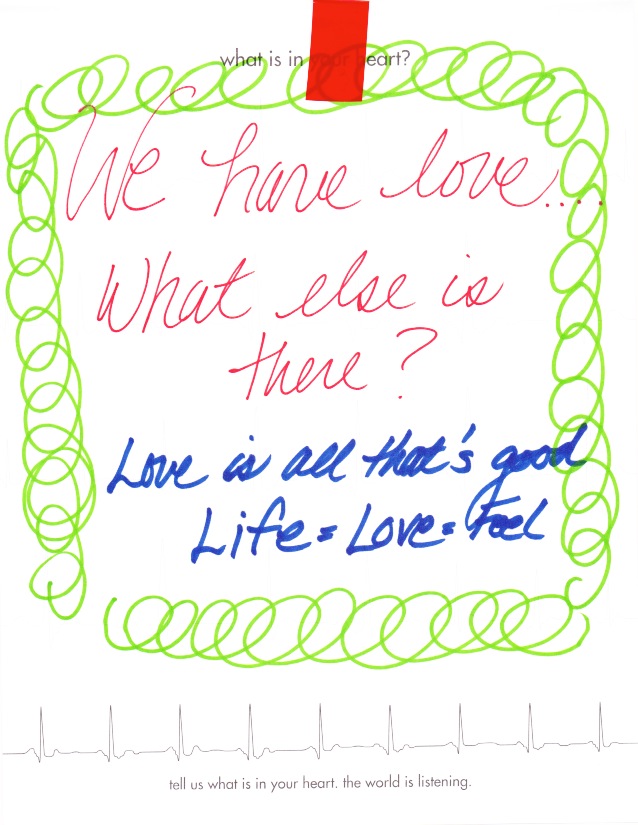 what is in your heart?
We have love....
What else is
there?
Love is all that's good
Life = Love = Feel
tell us what is in your heart. the world is listening.